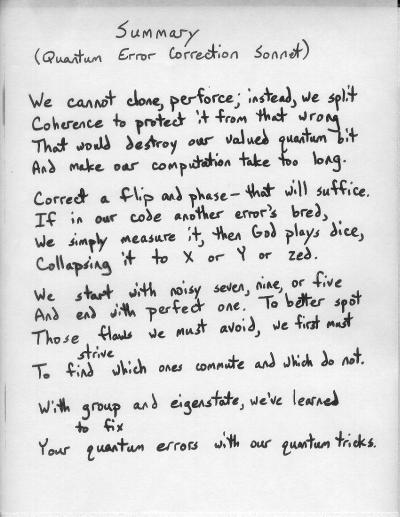 Summary
(Quantum Error Correction Sonnet)
We cannot clone, perforce; instead, we split
Coherence to protect it from that wrong
That would destroy our valued quantum bit
And make our computation take too long.
Correct a flip and phase – that will suffice.
If in our code another error's bred,
We simply measure it, then God plays dice,
Collapsing it to X or Y or zed.
We start with noisy seven, nine, or five
And end with perfect one. To better spot
Those flaws we must avoid, we first must
strive
To find which ones commute and which do not.
With group and eigenstate, we've learned
to fix
Your quantum errors with our quantum tricks.